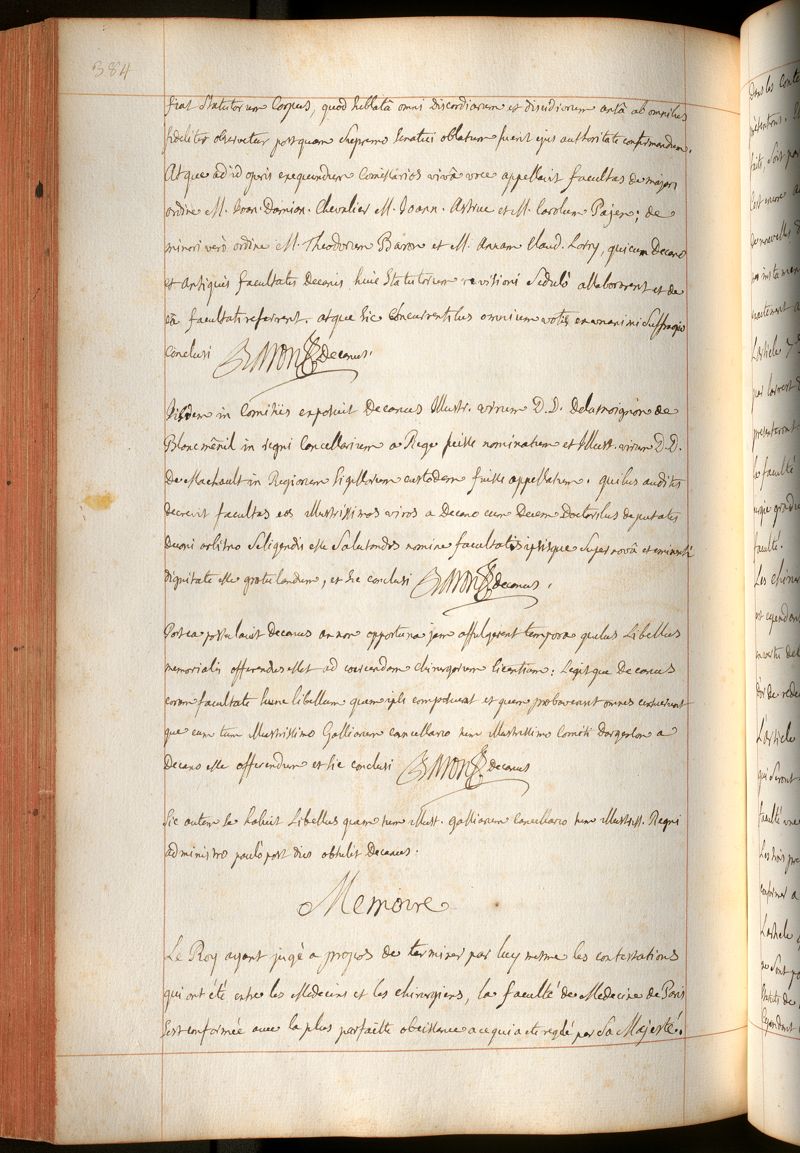 384
fiat Statutorum Corpus, quod sublatâ omni discordiarum et dissidiorum ansâ ab omnibus
fideliter observetur postquam Supremo Senatui oblatum fuerit ejus authoritate confirmandum.
Atque ad id operis exequendum Comissarios vivâ voce appellavit facultas de majori
ordine M. Joan. Damian. Chevalier M. Joann. Astruc et M. Carolum Payen; de
minori verò ordine M. Theodorum Baron et M. Annam Claud. Lorry, qui cum Decano
et Antiquis facultatis Decanis huic Statutorum revisioni Sedulò allaborarent et de
eâ facultati referrent. atque Sic Concurrentibus omnium votis ex unanimi Suffragio
Conclusi BARON decanus.
Iisdem in Comitiis exposuit Decanus Illustr. virum D.D. Delamoignon de
Blancmênil in regni Cancellarium a Rege fuisse nominatum et Illust. virum D.D.
de Machault in Regiorum Sigillorum custodem fuisse appellatum. quibus auditis
decrevit facultas eos illustrissimos viros a Decano cum Decem Doctoribus deputatis
decani arbitrio Seligendis esse Salutandos nomine facultatis ipsisque Super novâ et eminenti
dignitate esse gratulandum, et Sic conclusi BARON decanus.
Postea postulavit decanus an non opportuna jam affulgerent tempora quibus Libellus
memorialis offerendus esset ad coercendam chirurgorum licentiam: Legitque Decanus
coram facultate hunc libellum quem ipse composuerat et quem probaverunt omnes censuerunt
que eum tum Illustrissimo Galliarum cancellario tum Illustrissimo Comiti dargenson a
Decano esse offerendum et Sic conclusi BARON decanus
Sic autem Se habuit Libellus quem tum illust. galliarum Cancellario tum illustriss. Regni
administro paulò post dies obtulit Decanus.
Memoire
Le Roy ayant jugé a propos de terminer par luy mesme les contestations
qui ont été entre les Medecins et les chirurgiens, la faculté de Medecine de Paris
S'est conformée avec la plus parfaitte obeissance a ce qui a ete reglé par Sa Majesté.
Dans les
faculté.
Les chirur
L'article
qui Seront
L'article